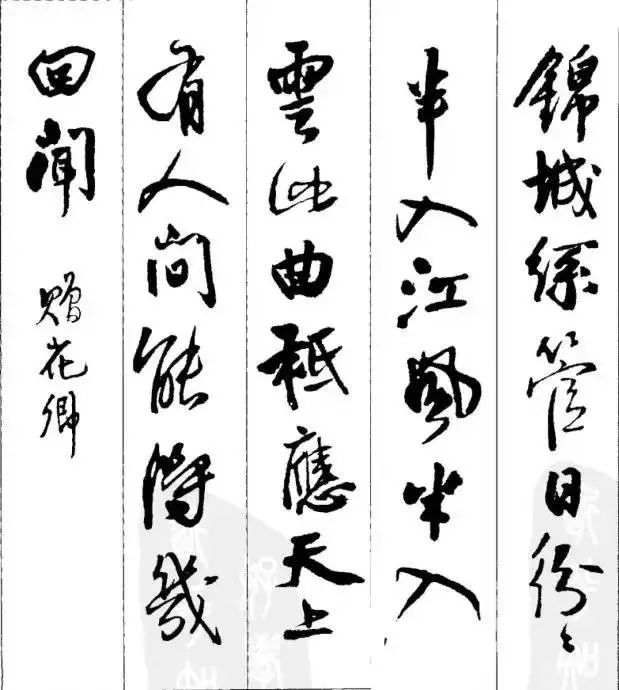 錦城絲管日紛〻
半入江風半入
雲此曲祗應天上
有人間能得幾
回聞 贈花卿